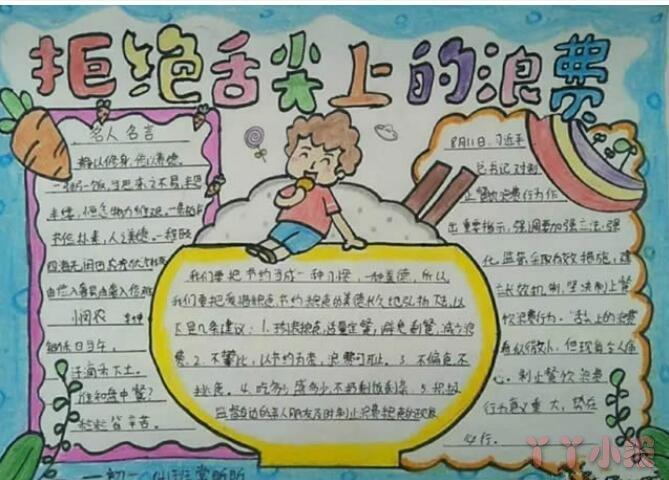 拒绝舌尖上的浪费
名人名言
静以修身,俭以养德。
一粥一饭,当思来之不易,半丝
半缕,恒念物力维艰。
四海无闲田,农夫犹饿死
由俭入奢易,由奢入俭难
悯农
锄禾日当午,
汗滴禾下土。
谁知盘中餐?
粒粒皆辛苦。
我们要把节约当成一种习惯,一种美德,所以
我们要把爱惜粮食,节约粮食的美德
下是几条建议:1.珍惜粮食,适量定餐,避免剩餐,减少浪
费.2.不攀比,以节约为荣,浪费可耻.3.不偏食不
挑食.4.吃多少盛多少,不扔剩饭剩菜.5.积极
监督身边的亲人朋友及时制止浪费粮食的现象
8月11日,习近平
总书记对制
止餐饮浪费行为作
出重要指示,强调要加强立法,强
化监管,采取有效措施,建
立长效机制,坚决制止餐
饮浪费行为。"舌尖上的浪费
看似微小,但
心。制止餐饮浪费
行为意义重大,势在
必行。
丫丫小巷